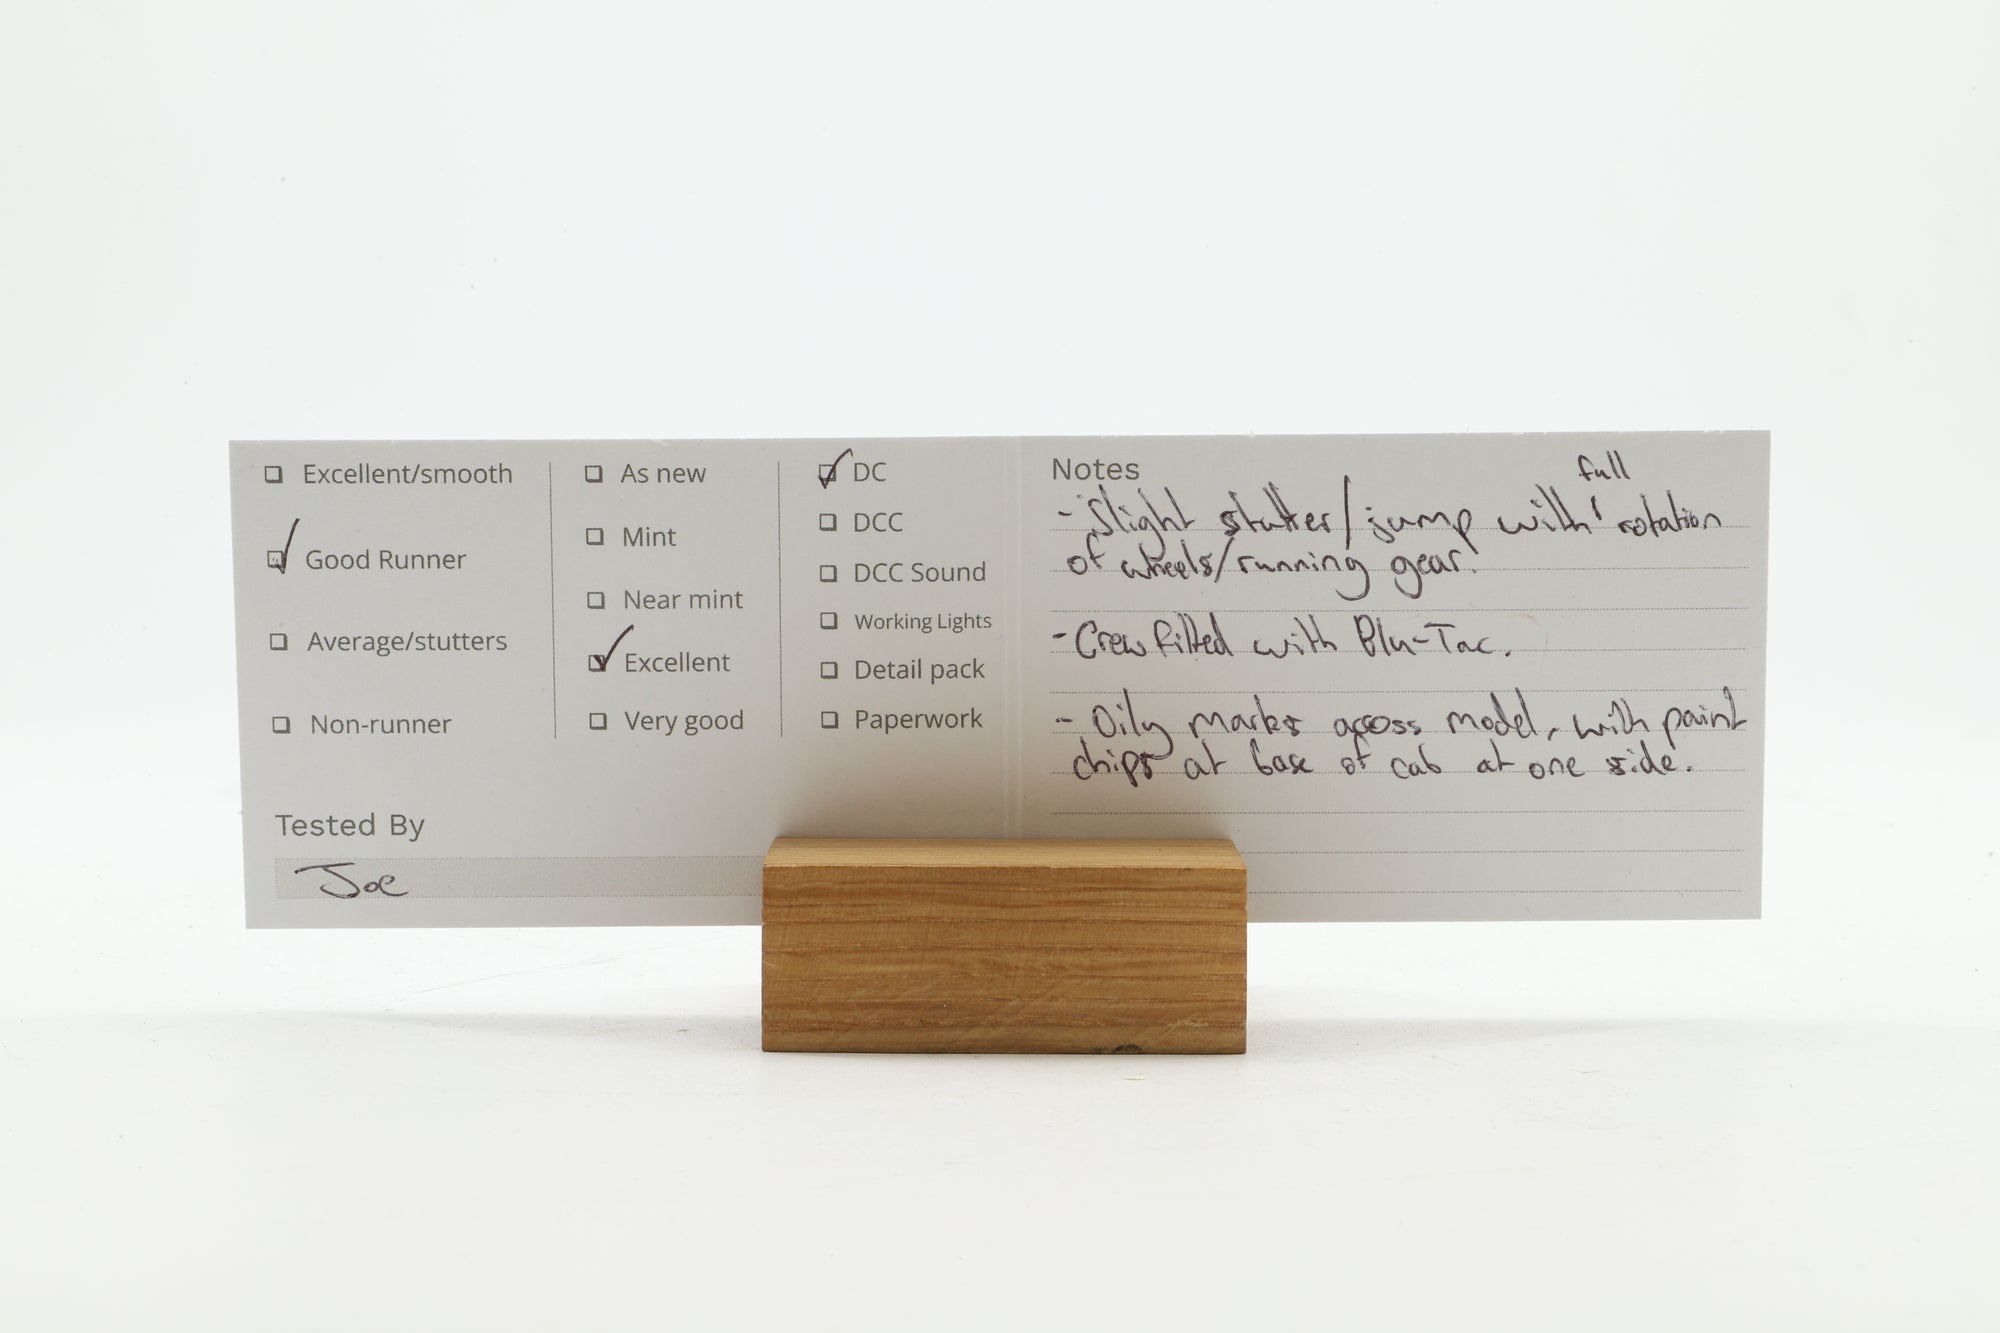 Excellent/smooth
Good Runner
Average/stutters
Non-runner
As new
Mint
Near mint
Excellent
Very good
DC
DCC
DCC Sound
Working Lights
Detail pack
Paperwork
Tested By
Joe
Notes
- Slight stutter/jump with full rotation
of wheels/running gear.
- Crew fitted with Blu-Tac.
- Oily marks across model, with paint
chips at base of cab at one side.